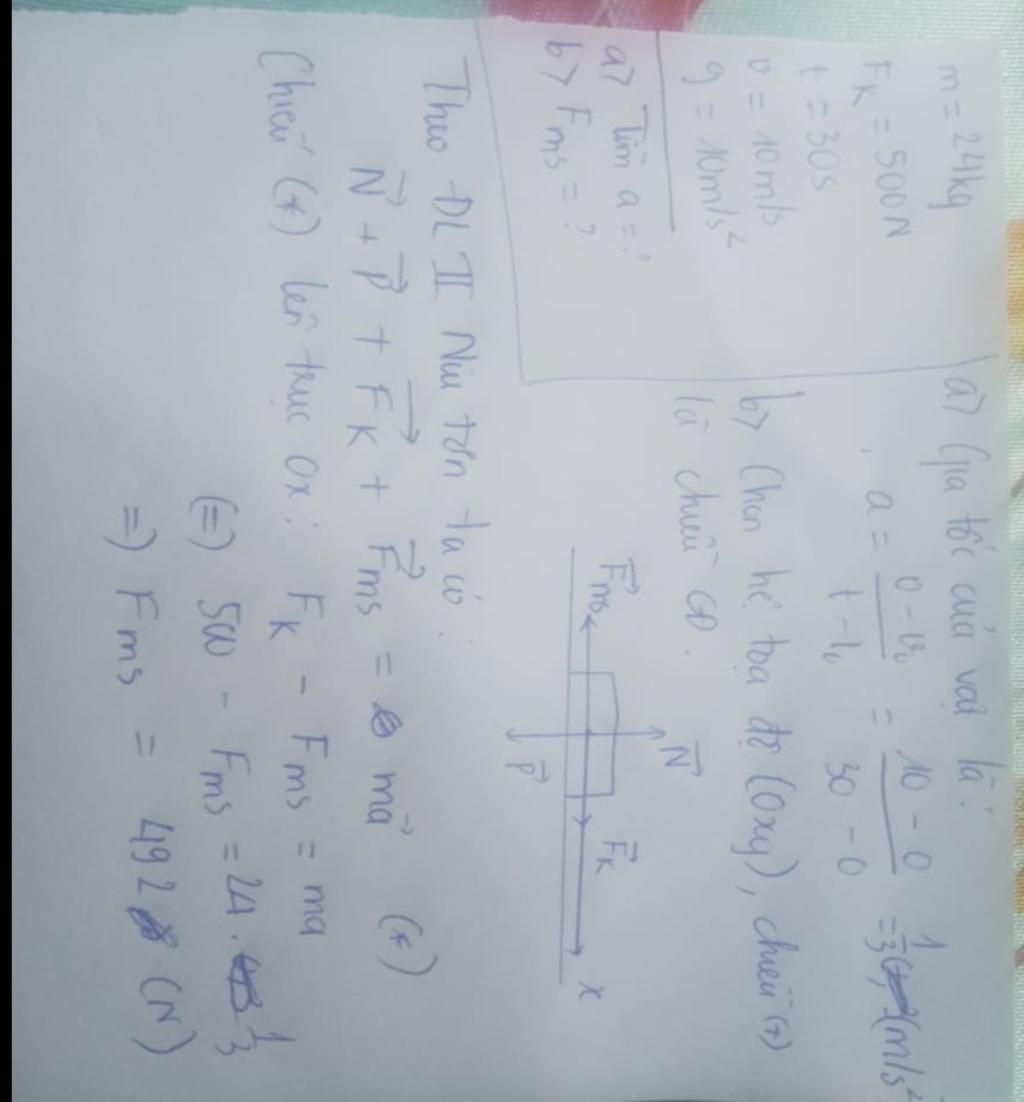 m = 24kg
FK = 500N
t = 30s
v = 10m/s
g = 10m/s²
a> Tìm a = ?
b> Fms = ?
a) Gia tốc của vật là:
a = (v - v₀)/(t - t₀) = (10 - 0)/(30 - 0) = 1/3 (m/s²
b> Chọn hệ tọa độ (Oxy), chiều (+)
là chiều CĐ.
N⃗
F⃗ms
F⃗K
x
P⃗
Theo ĐL II Niu tơn ta có:
N⃗ + P⃗ + F⃗K + F⃗ms = ma⃗ (*)
Chiếu (*) lên trục Ox: FK - Fms = ma
(=) 500 - Fms = 24 . 1/3
=) Fms = 492 (N)